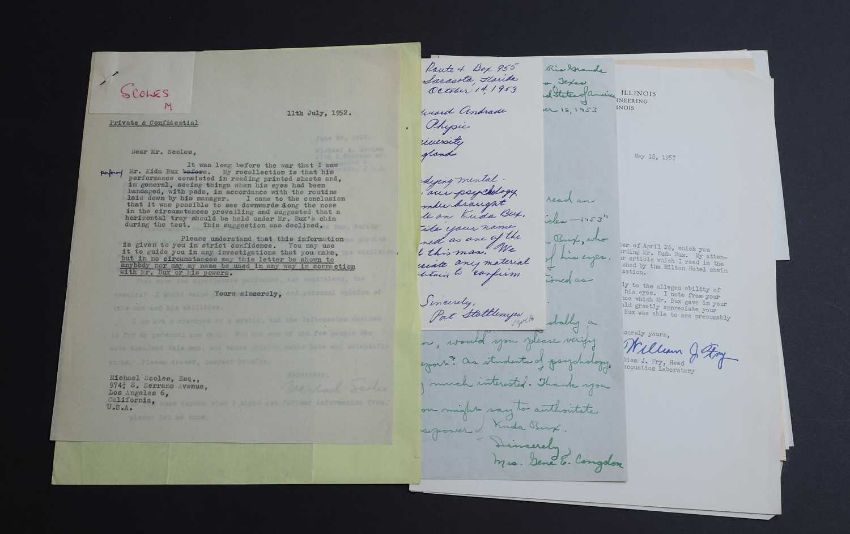 SCOLES
M
11th July, 1952.
Private & Confidential
Dear Mr. Scoles,
It was long before the war that I saw
Mr. Kuda Bux before. My recollection is that his
performance consisted in reading printed sheets and,
in general, seeing things when his eyes had been
bandaged, with pads, in accordance with the routine
laid down by his manager. I came to the conclusion
that it was possible to see downwards along the nose
in the circumstances prevailing and suggested that a
horizontal tray should be held under Mr. Bux's chin
during the test. This suggestion was declined.
Please understand that this information
is given to you in strict confidence. You may use
it to guide you in any investigations that you make,
but in no circumstances may this letter be shown to
anybody nor may my name be used in any way in connection
with Mr. Bux or his powers.
Yours sincerely,
Michael Scoles, Esq.,
974½ S. Serrano Avenue,
Los Angeles 6,
California,
U.S.A.
Route 4 Box 955
Sarasota, Florida
October 14, 1953
ward Andrade
Physic
iversity
gland
dying mental-
our psychology
brought
on Kuda Bux.
your name
ed as one of the
this man. We
any material
to confirm
Sincerely,
Pat Stottlemyer
Rio Grande
Texas
United States of America
16, 1953
read an
cles — 1953"
Bux, who
of his eyes.
ioned as
bally a
n, would you please verify
As students of psychology,
much interested. Thank you
ou might say to authenticate
power of Kuda Bux.
Sincerely,
Mrs. Gene E. Congdon
ILLINOIS
GINEERING
INOIS
May 18, 1957
er of April 26, which you
rning Mr. Kuda Bux. My atten-
r article which I read in the
shed by the Hilton Hotel chain
ation.
ly to the alleged ability of
his eyes. I note from your
nce which Mr. Bux gave in your
ld greatly appreciate your
Bux was able to see presumably
cerely yours,
William J. Fry
liam J. Fry, Head
coustics Laboratory